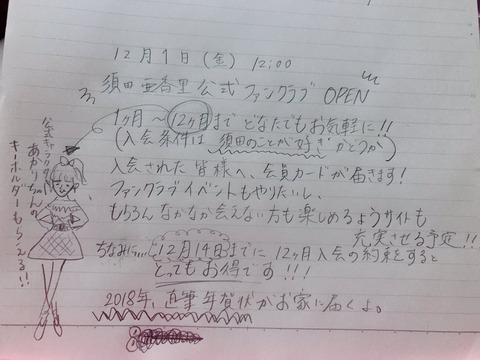 12月1日(金) 12:00
須田亜香里公式ファンクラブ OPEN
1ヶ月〜12ヶ月まで どなたでもお気軽に!!
(入会条件は 須田のことが好き かどうか)
入会された皆様へ、会員カードが届きます!
ファンクラブイベントもやりたいし、
もちろんなかなか会えない方も楽しめるようサイトも
充実させる予定!!
ちなみに、、、12月14日までに 12ヶ月入会の約束をすると
とってもお得です!!!
2018年、直筆年賀状がお家に届くよ。
公式キャラクター
あかりちゃんの
キーホルダーもらえる!!